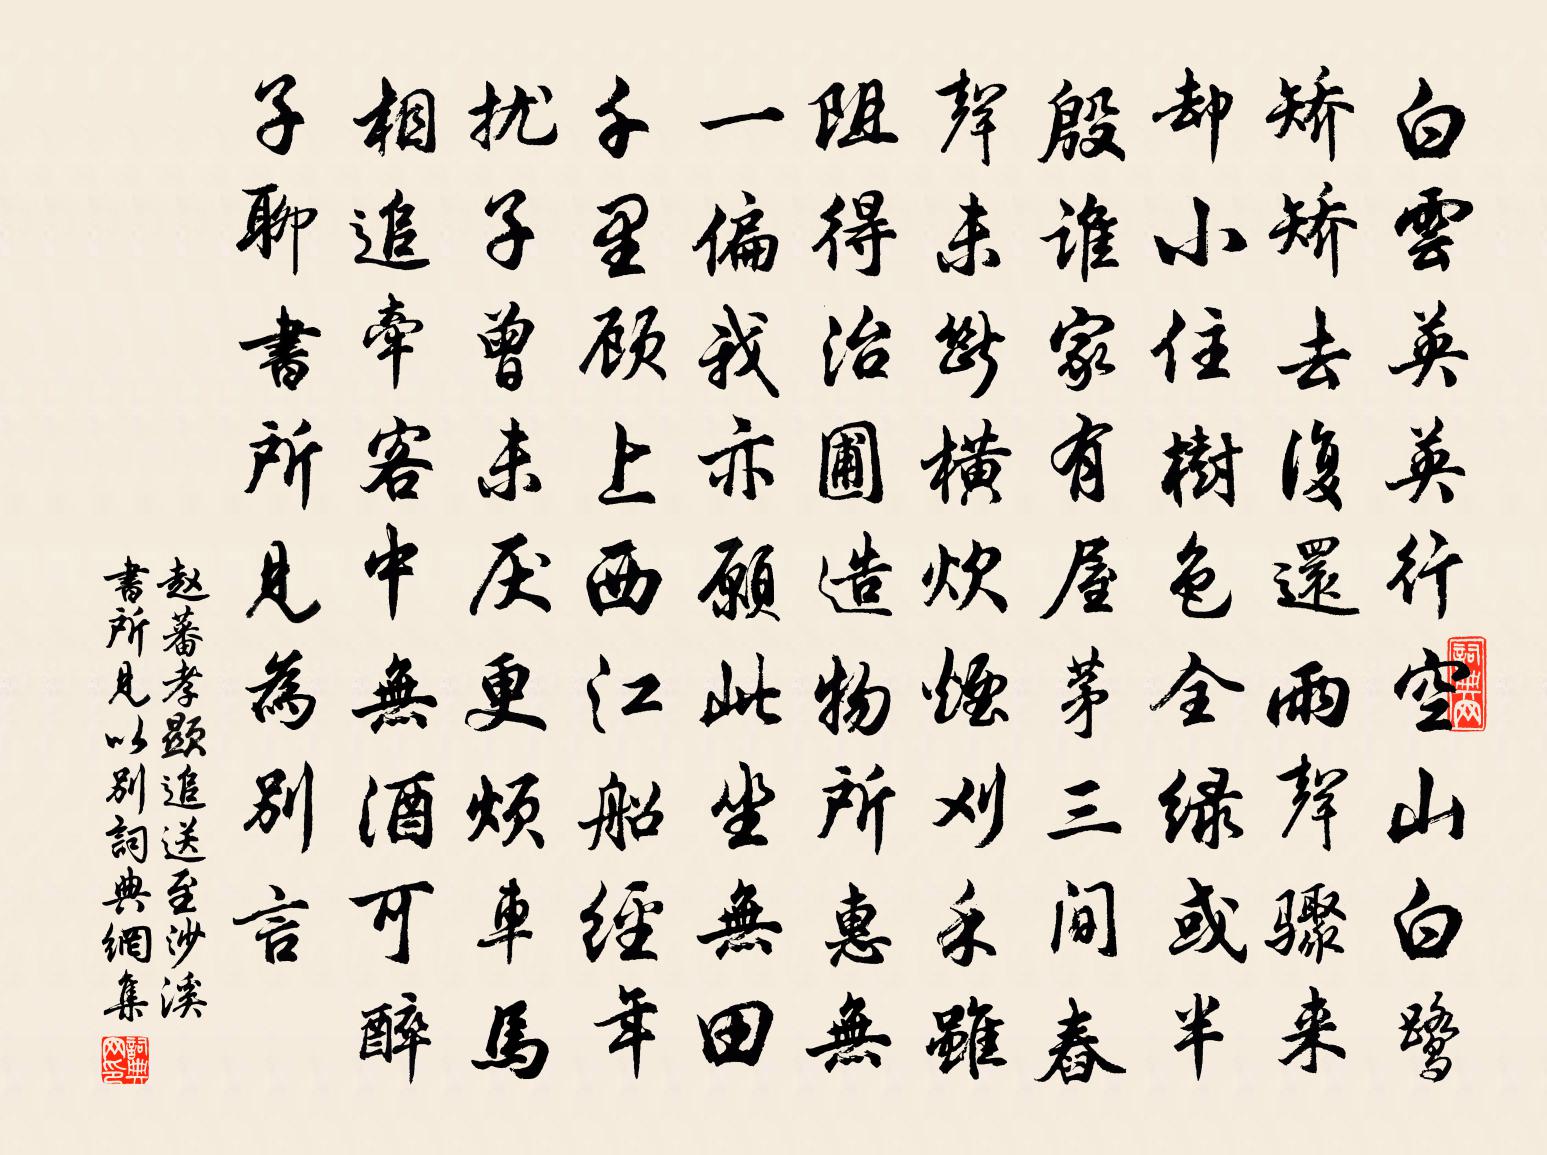 白雲英英行空山白鹭
矫矫去復還雨聲驟来
却小住樹色全绿或半
殷誰家有屋茅三间舂
聲未断横炊煙刈禾雖
阻得治圃造物所惠無
一偏我亦願此坐無田
千里顾上西江船經年
扰子曾未厌更烦車馬
相追牽客中無酒可醉
子聊書所見為别言
赵蕃孝顯追送至沙溪
書所見以别詞典網集
詞典网
詞典网印